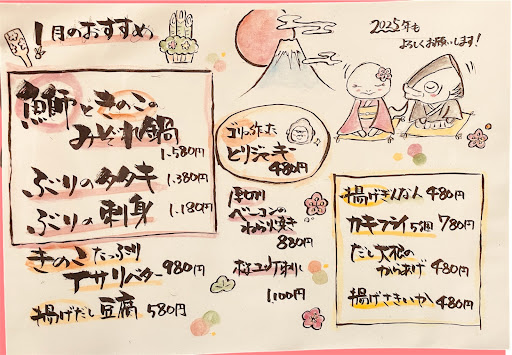 1月のおすすめ
2025年も
よろしくお願いします！
鰤ときのこの
みぞれ鍋
1.580円
ぶりのタタキ 1.380円
ぶりの刺身 1.180円
きのこたっぷり
アサリバター 980円
揚げだし豆腐 580円
ゴリの作った
とりジャーキー
480円
厚切り
ベーコンの
わら焼き
880円
桜ユッケ刺し
1,100円
揚げぎんなん 480円
カキフライ5個 780円
だし大根の
からあげ 480円
揚げさきいか 480円